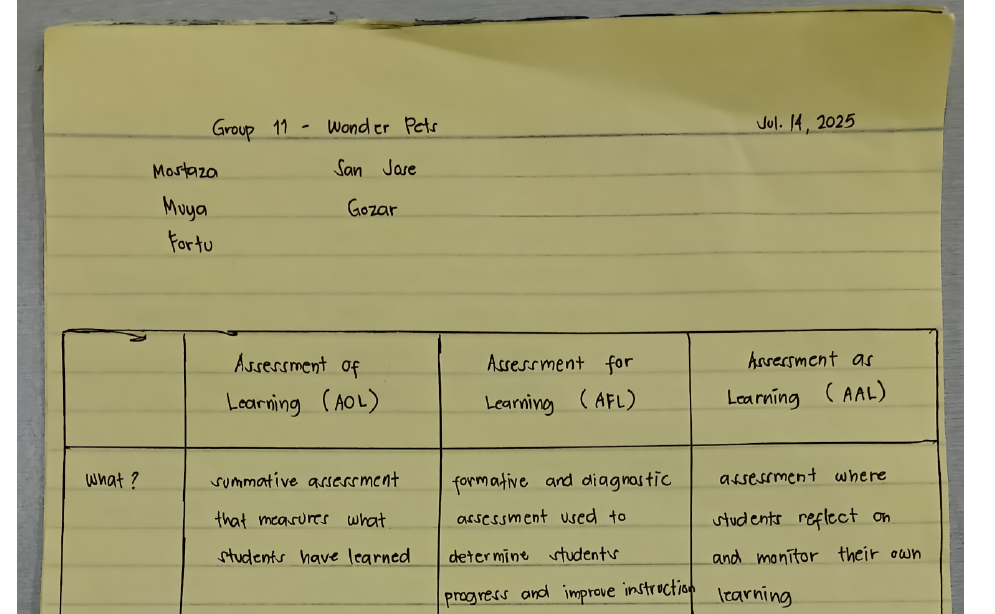 Group 11 - Wonder Pets
Jul. 14, 2025
Mostaza
San Jose
Muya
Gozar
Fortu
Assessment of
Learning (AOL)
Assessment for
Learning (AFL)
Assessment as
Learning (AAL)
What?
summative assessment
that measures what
students have learned
formative and diagnostic
assessment used to
determine students
progress and improve instruction
assessment where
students reflect on
and monitor their own
learning